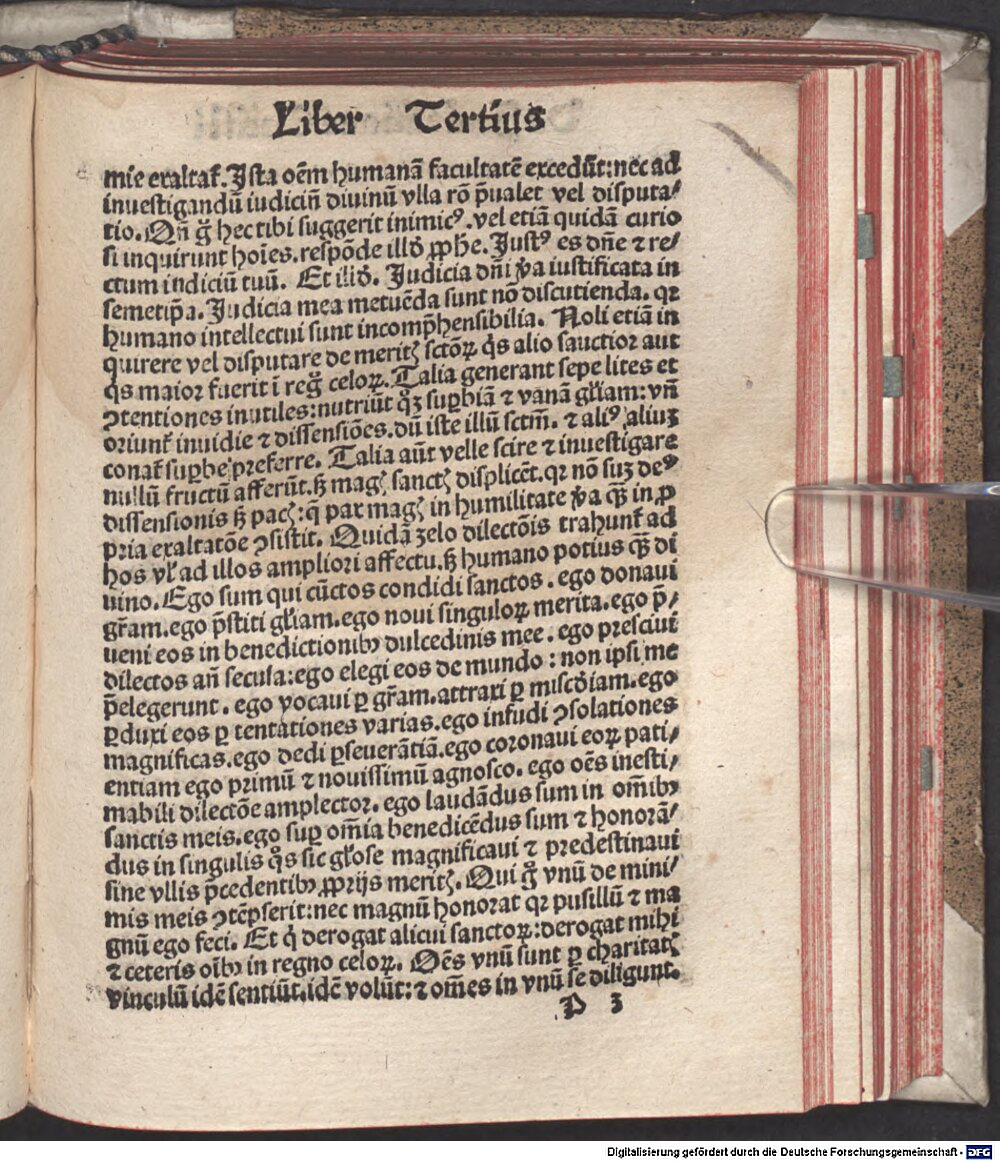 Liber Tertius
mie exaltat̃. Ista oēm humanā facultatē excedūt: nec ad
inuestigandū iudiciū diuinū vlla rō p̄ualet vel disputa/
tio. Qñ g̊ hec tibi suggerit inimicꝰ. vel etiā quidā curio
si inquirunt hoīes. respōde illḋ ꝓphe. Justꝰ es dñe ⁊ re/
ctum iudiciū tuū. Et illḋ. Judicia dñi v̓a iustificata in
semetip̄a. Judicia mea metuēda sunt nō discutienda. qꝛ
humano intellectui sunt incomp̄hensibilia. Noli etiā in
quirere vel disputare de meritꝭ sctōꝝ q̇s alio sanctior aut
q̇s maior fuerit ī reg̊ celoꝝ. Talia generant sepe lites et
ꝯtentiones inutiles: nutriūt qꝫ suꝑbiā ⁊ vanā gl̓iam: vñ
oriunt̃ inuidie ⁊ dissensiōes. dū iste illū sctm̄. ⁊ aliꝰ aliuꝫ
conat̃ suꝑbe preferre. Talia aūt velle scire ⁊ inuestigare
nullū fructū afferūt. sꝫ magꝭ sanctꝭ displicēt. qꝛ nō suꝫ deꝰ
dissensionis sꝫ pacꝭ: q̄ pax magꝭ in humilitate v̓a qꝫ̄ in ꝓ
pria exaltatōe ꝯsistit. Quidā zelo dilectōis trahunt̃ ad
hos vl̓ ad illos ampliori affectu. sꝫ humano potius qꝫ̄ di
uino. Ego sum qui cūctos condidi sanctos. ego donaui
gr̄am. ego p̄stiti gl̓iam. ego noui singuloꝝ merita. ego p̄/
ueni eos in benedictionibꝫ dulcedinis mee. ego presciui
dilectos añ secula: ego elegi eos de mundo: non ipsi me
p̄elegerunt. ego vocaui ꝑ gr̄am. attraxi ꝑ misc̄diam. ego
ꝑduxi eos ꝑ tentationes varias. ego infudi ꝯsolationes
magnificas. ego dedi ꝑseuerātiā. ego coronaui eoꝝ pati/
entiam ego primū ⁊ nouissimū agnosco. ego oēs inesti/
mabili dilectōe amplector. ego laudādus sum in om̄ibꝫ
sanctis meis. ego suꝑ om̄ia benedicēdus sum ⁊ honorā/
dus in singulis q̊s sic gl̓ose magnificaui ⁊ predestinaui
sine vllis p̄cedentibꝫ ꝓprijs meritꝭ. Qui g̊ vnū de mini/
mis meis ꝯtēpserit: nec magnū honorat qꝛ pusillū ⁊ ma
gnū ego feci. Et q̇ derogat alicui sanctoꝝ: derogat mihi
⁊ ceteris oībꝫ in regno celoꝝ. Oēs vnū sunt ꝑ charitatꝭ
vinculū idē sentiūt. idē volūt: ⁊ om̄es in vnū se diligunt.
P 3
Digitalisierung gefördert durch die Deutsche Forschungsgemeinschaft - DFG